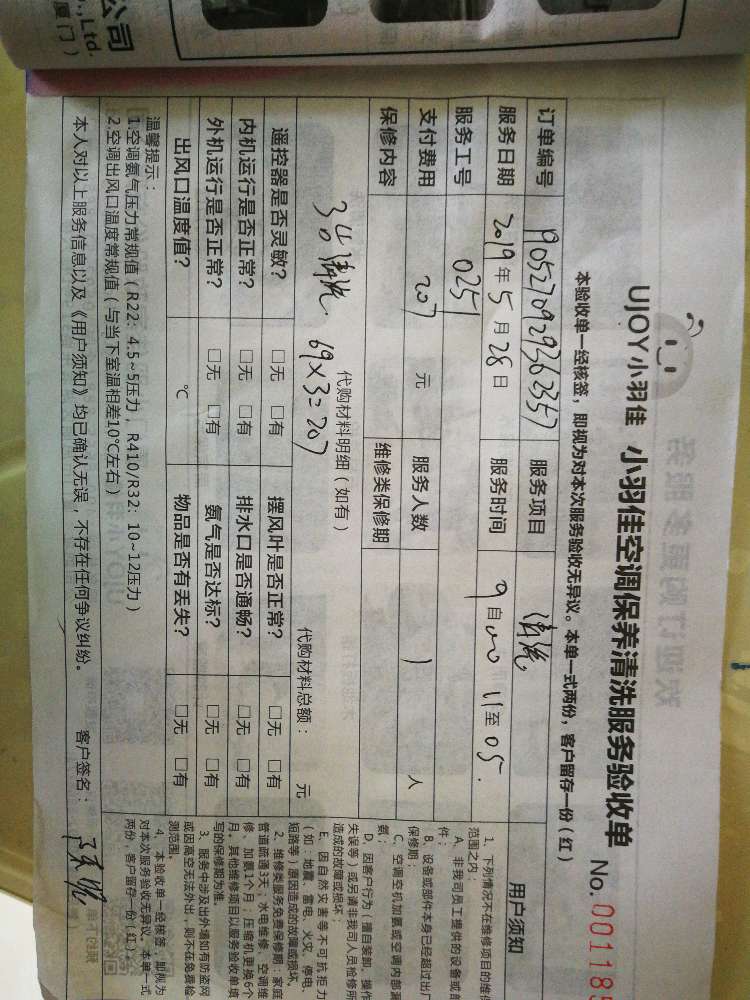 公司
., Ltd.
厦门)
UJOY小羽佳 小羽佳空调保养清洗服务验收单
No. 001185
本验收单一经核签，即视为对本次服务验收无异议。本单一式两份，客户留存一份(红)
订单编号 1905270929362357 服务项目 清洗
服务日期 2019年5月28日 服务时间 9自00 11至05.
服务工号 0251
支付费用 207 元 服务人数 1 人
保修内容 维修类保修期
代购材料明细(如有) 代购材料总额: 元
3台清洗 69×3=207
遥控器是否灵敏? □无 □有 摆风叶是否正常? □无 □有
内机运行是否正常? □无 □有 排水口是否通畅? □无 □有
外机运行是否正常? □无 □有 氨气是否达标? □无 □有
出风口温度值? ℃ 物品是否有丢失? □无 □有
温馨提示:
1.空调氨气压力常规值(R22: 4.5~5压力, R410/R32: 10~12压力)
2.空调出风口温度常规值(与当下室温相差10℃左右)
本人对以上服务信息以及《用户须知》均已确认无误，不存在任何争议纠纷。 客户签名:
用户须知
1、下列情况不在维修项目的维保
范围之内:
A、非我司员工提供的设备或部
件;
B、设备或部件本身已经超过出厂
保修期;
C、空调空机加氨或空调内部漏
氨;
D、因客户行为(擅自装卸、操作
失误等)或另请非我司人员检修所
造成的故障或损坏;
E、因自然灾害等不可抗拒力
(如:地震、雷电、火灾、停电、
短路等)原因造成的故障或损坏。
2、维修类服务免费保修期:家庭
管道疏通3天,水电维修、空调维
修、加氨1个月;压缩机更换6个
月,其他维修项目以服务验收单填
写的保修期为准。
3、服务中涉及出外墙如有防盗网
或因高空无法外出,则不在免费检
测范围。
4、本验收单一经核签,即视为
对本次服务验收无异议。本单一式
两份,客户留存一份(红)。